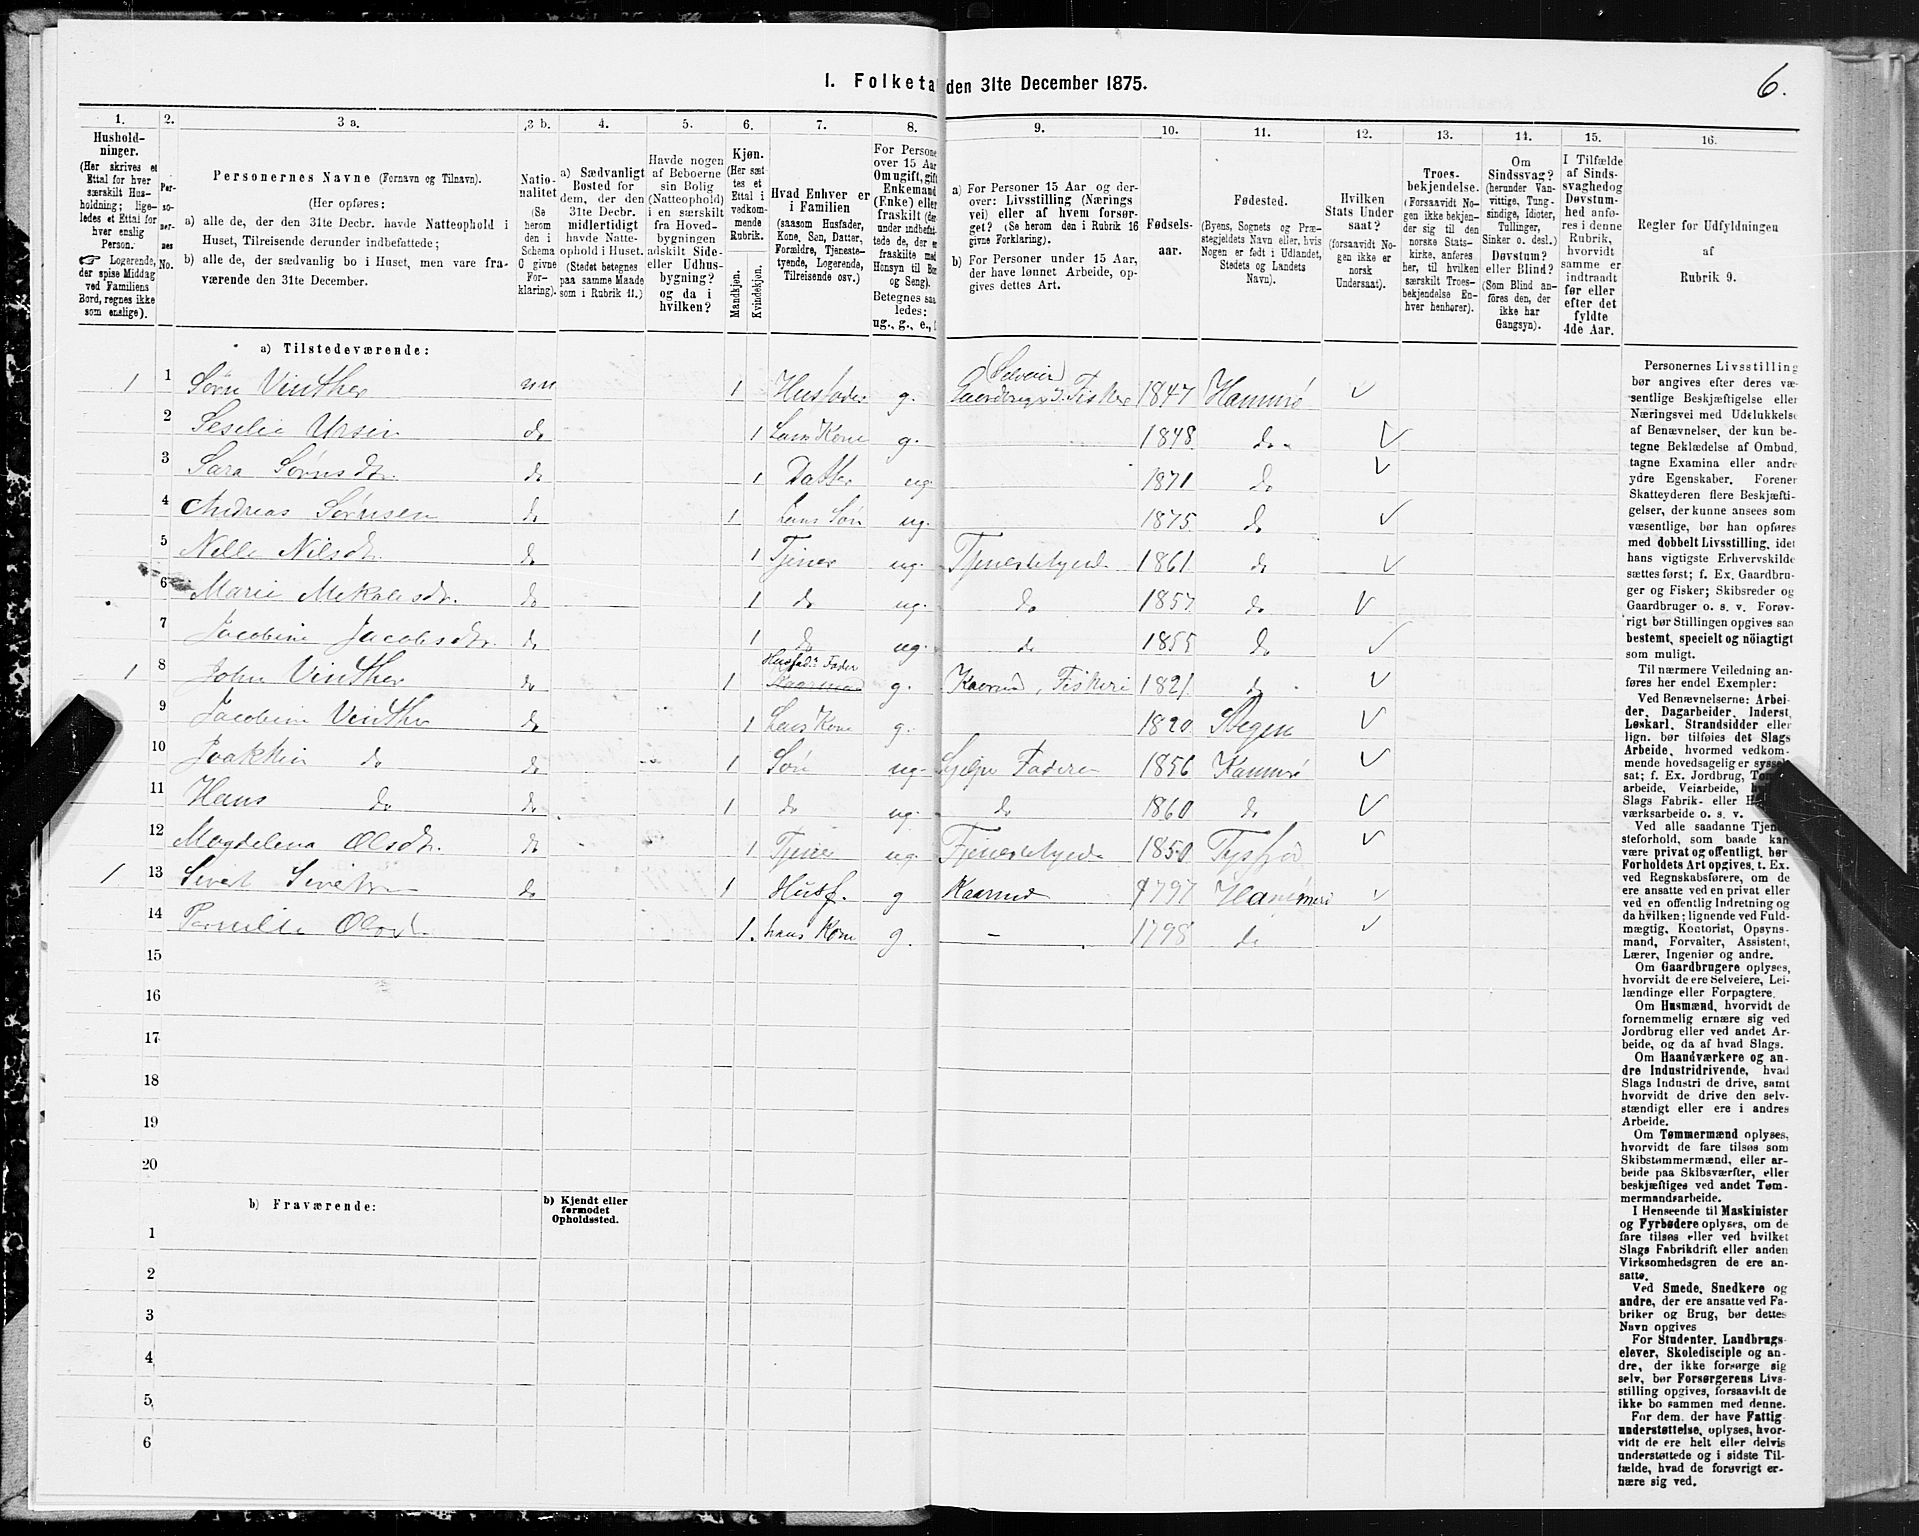 I. Folketa den 31te December 1875.
6.
1.
2.
3 a.
3 b.
4.
5.
6.
7.
8.
9.
10.
11.
12.
13.
14.
15.
16.
Hushold-
ninger.
(Her skrives et
Ettal for hver
særskilt Hus-
holdning; lige-
ledes et Ettal for
hver enslig
Person.
☞ Logerende,
der spise Middag
ved Familiens
Bord, regnes ikke
som enslige).
Per-
so-
ner-
nes
No.
Personernes Navne (Fornavn og Tilnavn).
(Her opføres:
a) alle de, der den 31te Decbr. havde Natteophold i
Huset, Tilreisende derunder indbefattede;
b) alle de, der sædvanlig bo i Huset, men vare fra-
værende den 31te December.
Natio-
nalitet
(Se
herom
den i
Schema
C givne
For-
klaring).
a) Sædvanligt
Bosted for
dem, der den
31te Decbr.
midlertidigt
havde Natte-
ophold i Huset.
(Stedet betegnes
paa samme Maade
som i Rubrik 11.)
Havde nogen
af Beboerne
sin Bolig
(Natteophold)
i en særskilt
fra Hoved-
bygningen
adskilt Side-
eller Udhus-
bygning?
og da i
hvilken?
Kjøn.
(Her sæt-
tes et
Ettal i
vedkom-
mende
Rubrik.
Mandkjøn.
Kvindekjøn.
Hvad Enhver er
i Familien
(saasom Husfader,
Kone, Søn, Datter,
Forældre, Tjeneste-
tyende, Logerende,
Tilreisende osv.)
For Persone
over 15 Aar
Om ugift, gift
Enkemand
(Enke) eller
fraskilt (der
under indbefat-
tede de, der er
fraskilte med
Hensyn til Bor
og Seng).
Betegnes saa
ledes:
ug., g., e., f
a) For Personer 15 Aar og der-
over: Livsstilling (Nærings
vei) eller af hvem forsør-
get? (Se herom den i Rubrik 16
givne Forklaring).
b) For Personer under 15 Aar,
der have lønnet Arbeide, op-
gives dettes Art.
Fødsels-
aar.
Fødested.
(Byens, Sognets og Præ-
stegjeldets Navn eller, hvis
Nogen er født i Udlandet,
Stedets og Landets
Navn).
Hvilken
Stats Under
saat?
(forsaavidt No-
gen ikke er
norsk
Undersaat).
Troes-
bekjendelse.
(Forsaavidt No
gen ikke bekjen-
der sig til den
norske Stats-
kirke, anføres
her, til hvilken
særskilt Troes-
bekjendelse En-
hver henhører).
Om
Sindssvag?
(herunder Van-
vittige, Tung-
sindige, Idioter,
Tullinger,
Sinker o. desl.)
Døvstum?
eller Blind?
(Som Blind an-
føres den, der
ikke har
Gangsyn).
I Tilfælde
af Sinds-
svaghed og
Døvstum-
hed anfø-
res i denne
Rubrik,
hvorvidt
samme er
indtraadt
før eller
efter det
fyldte
4de Aar.
Regler for Udfyldningen
af
Rubrik 9.
a) Tilstedeværende:
1 1 Sørn Vinther nn 1 Husfader g. Gaardbruger (Selveier) Fisker 1847 Hammrø
2 Ursin do 1 hans Kone g. 1848 do
3 Sara Sørnsdtr. do 1 Datter ug. 1871 do
4 Andreas Sørnsen do 1 hans Søn ug. 1875 do
5 Nilsdtr. do 1 Tjener ug. Tjenestetyende 1861 do
6 Marie do 1 do ug. do 1857 do
7 Jacobine Jacobsdtr. do 1 do ug. do 1855 do
1 8 John Vinther do 1 Husfad. Fader g. Kaarmd, Fiskeri 1821 do
9 Jacobine Vinther do 1 hans Kone g. 1820 Stegen
10 Joakhim do do 1 Søn ug. hjelper Faderen 1856 Hammrø
11 Hans do do 1 do ug. do 1860 do
12 Magdelena Olsdtr. do 1 Tjener ug. Tjenestetyende 1850 Tysfjo
1 13 do 1 Husf. g Kaarmd 1797 Hammerø
14 Olsdt. 1. hans Kone g. — 1798 do
15
16
17
18
19
20
b) Fraværende:
b) Kjendt eller
formodet
Opholdssted.
1
2
3
4
5
6
Personernes Livsstilling
bør angives efter deres væ-
sentlige Beskjæftigelse eller
Næringsvei med Udelukkelse
af Benævnelser, der kun be-
tegne Beklædelse af Ombud,
tagne Examina eller andre
ydre Egenskaber. Forener
Skatteyderen flere Beskjæfti-
gelser, der kunne ansees som
væsentlige, bør han opføres
med dobbelt Livsstilling, idet
hans vigtigste Erhvervskilde
sættes først; f. Ex. Gaardbru-
ger og Fisker; Skibsreder og
Gaardbruger o. s. v. Forøv-
rigt bør Stillingen opgives saa
bestemt, specielt og nöiagtigt
som muligt.
Til nærmere Veiledning an-
føres her endel Exempler:
Ved Benævnelserne: Arbei-
der, Dagarbeider, Inderst,
Løskarl, Strandsidder eller
lign. bør tilføies det Slags
Arbeide, hvormed vedkom-
mende hovedsagelig er syssel-
sat; f. Ex. Jordbrug,
arbeide, Veiarbeide,
Slags Fabrik- eller
værksarbeide o. s. v.
Ved alle saadanne
steforhold, som baade kan
være privat og offentligt, bør
Forholdets Art opgives, t. Ex.
ved Regnskabsførere, om de
ere ansatte ved en privat eller
ved en offentlig Indretning og
da hvilken; lignende ved Fuld-
mægtig, Kontorist, Opsyns-
mand, Forvalter, Assistent,
Lærer, Ingeniør og andre.
Om Gaardbrugere oplyses,
hvorvidt de ere Selveiere, Lei-
lændinge eller Forpagtere.
Om Husmænd, hvorvidt de
fornemmelig ernære sig ved
Jordbrug eller ved andet Ar-
beide, og da af hvad Slags.
Om Haandværkere og an-
dre Industridrivende, hvad
Slags Industri de drive, samt
hvorvidt de drive den selv-
stændigt eller ere i andres
Arbeide.
Om Tømmermænd oplyses,
hvorvidt de fare tilsøs som
Skibstømmermænd, eller ar-
beide paa Skibsværfter, eller
beskjæftiges ved andet Tøm-
mermandsarbeide.
I Henseende til Maskinister
og Fyrbødere oplyses, om de
fare tilsøs eller ved hvilket
Slags Fabrikdrift eller anden
Virksomhedsgren de ere an-
satte.
Ved Smede, Snedkere og
andre, der ere ansatte ved Fa-
briker og Brug, bør dettes
Navn opgives
For Studenter, Landbrugs-
elever, Skoledisciple og an-
dre, der ikke forsørge sig
selv, bør Forsørgerens Livs-
stilling opgives, forsaavidt de
ikke bo sammen med denne.
For dem, der have Fattig-
understøttelse, oplyses, hvor-
vidt de ere helt eller delvis
understøttede og i sidste Til-
fælde, hvad de forøvrigt er-
nære sig ved.